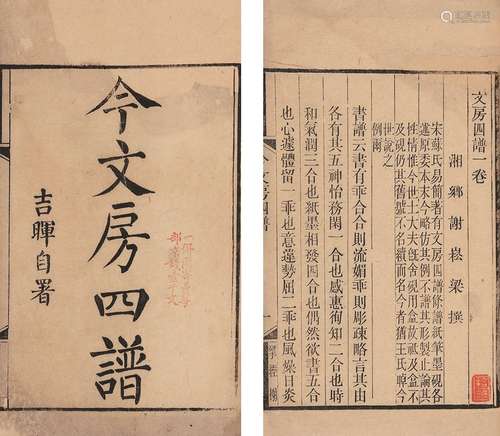 今文房四譜
吉暉自署
文房四譜一卷
湘鄉謝崧梁撰
宋蘇氏易簡著有文房四譜條譜紙筆墨硯各
述原委本末今略仿其例不譜其形製止論其
性情惟今世士大夫旣舍硯用盒故祗及盒不
及硯仍其舊號不名續而名今者猶王氏晫今
世說之
例爾
書譜云書有乖合合則流媚乖則彫疎略言其由
各有其五神怡務閑一合也感惠徇知二合也時
和氣潤三合也紙墨相發四合也偶然欲書五合
也心遽體留一乖也意違勢屈二乖也風燥日炎